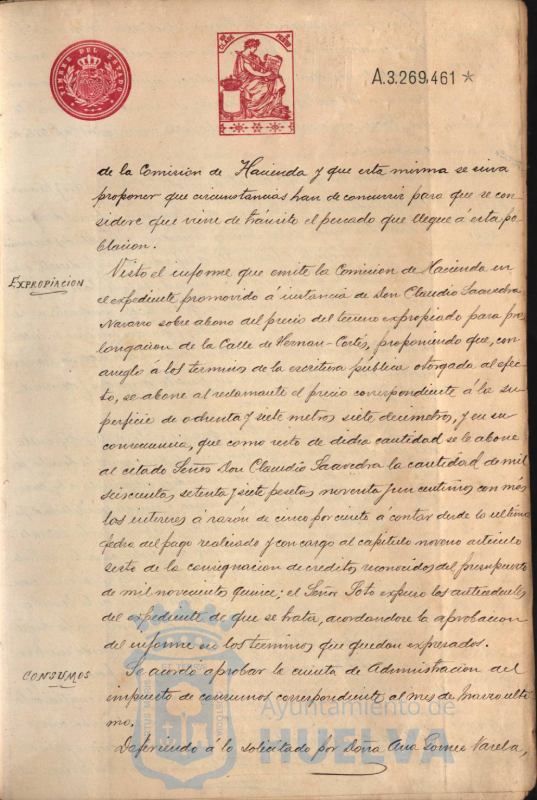 TIMBRE DEL ESTADO
A.3.269.461 *
de la Comision de Hacienda y que esta misma se sirva
proponer que circunstancias han de concurrir para que se con
sidere que viene de tránsito el pescado que llegue á esta po
blacion.
EXPROPIACION
Visto el informe que emite la Comision de Hacienda en
el expediente promovido á instancia de Don Claudio Saavedra
Navarro sobre abono del precio del terreno expropiado para pro
longacion de la Calle de Hernan-Cortés, proponiendo que, con
arreglo á los terminos de la escritura publica otorgada al efec
to, se abone al reclamante el precio correspondiente á la su
perficie de ochenta y siete metros siete decimetros, y en su
consecuencia, que como resto de dicha cantidad se le abone
al citado Señor Don Claudio Saavedra la cantidad de mil
seiscientas setenta y siete pesetas noventa y un centimos con más
los intereses á razón de cinco por ciento á contar desde la ultima
fecha del pago realizado y con cargo al capitulo noveno articulo
sexto de la consignacion de creditos reconocidos del presupuesto
de mil novecientos quince; el Señor Soto expuso los antecedentes
del expediente de que se trata, acordandose la aprobacion
del informe en los terminos que quedan expresados.
CONSUMOS
Se acordó aprobar la cuenta de Administracion del
impuesto de consumos correspondiente al mes de Marzo ulti
mo.
Defiriendo á lo solicitado por Doña Ana Gomez Varela,
Ayuntamiento de
HUELVA